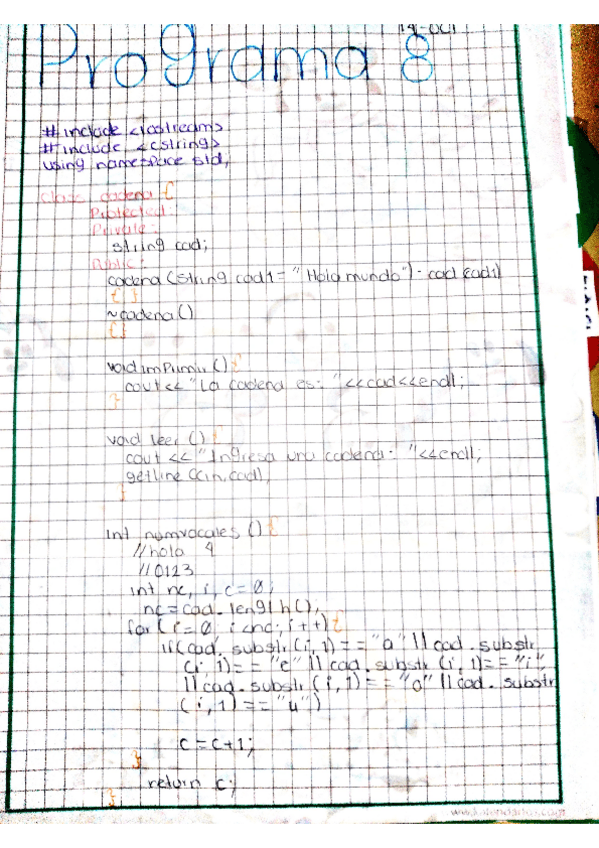 19-Oct
Programa 8
#include <iostream>
#include <cstring>
using namespace std;
class cadena {
Protected:
Private:
string cad;
Public:
cadena (string cad1 = "Hola mundo") : cad (cad1)
{ }
~cadena ()
{}
void imprimir () {
cout << "La cadena es: " <<cad<<endl;
}
void leer () {
cout << "Ingresa una cadena: " <<endl;
getline (cin, cad);
}
int numvocales () {
//hola 4
//0123
int nc, i, c = 0;
nc = cad. length ();
for (i = 0; i <nc; i ++) {
if (cad. substr (i, 1) == "a" || cad. substr
(i, 1) == "e" || cad. substr (i, 1) == "i"
|| cad. substr (i, 1) == "o" || cad. substr
(i, 1) == "u")
c = c+1;
}
return c;
}